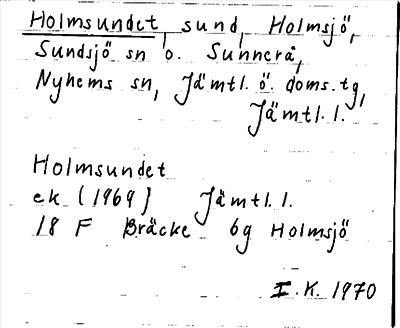 Holmsundet, sund, Holmsjö,
Sundsjö sn o. Sunnerå,
Nyhems sn, Jämtl. ö. doms. tg,
Jämtl. l.
Holmsundet
ek (1969) Jämtl. l.
18 F Bräcke 6g Holmsjö
I.K. 1970